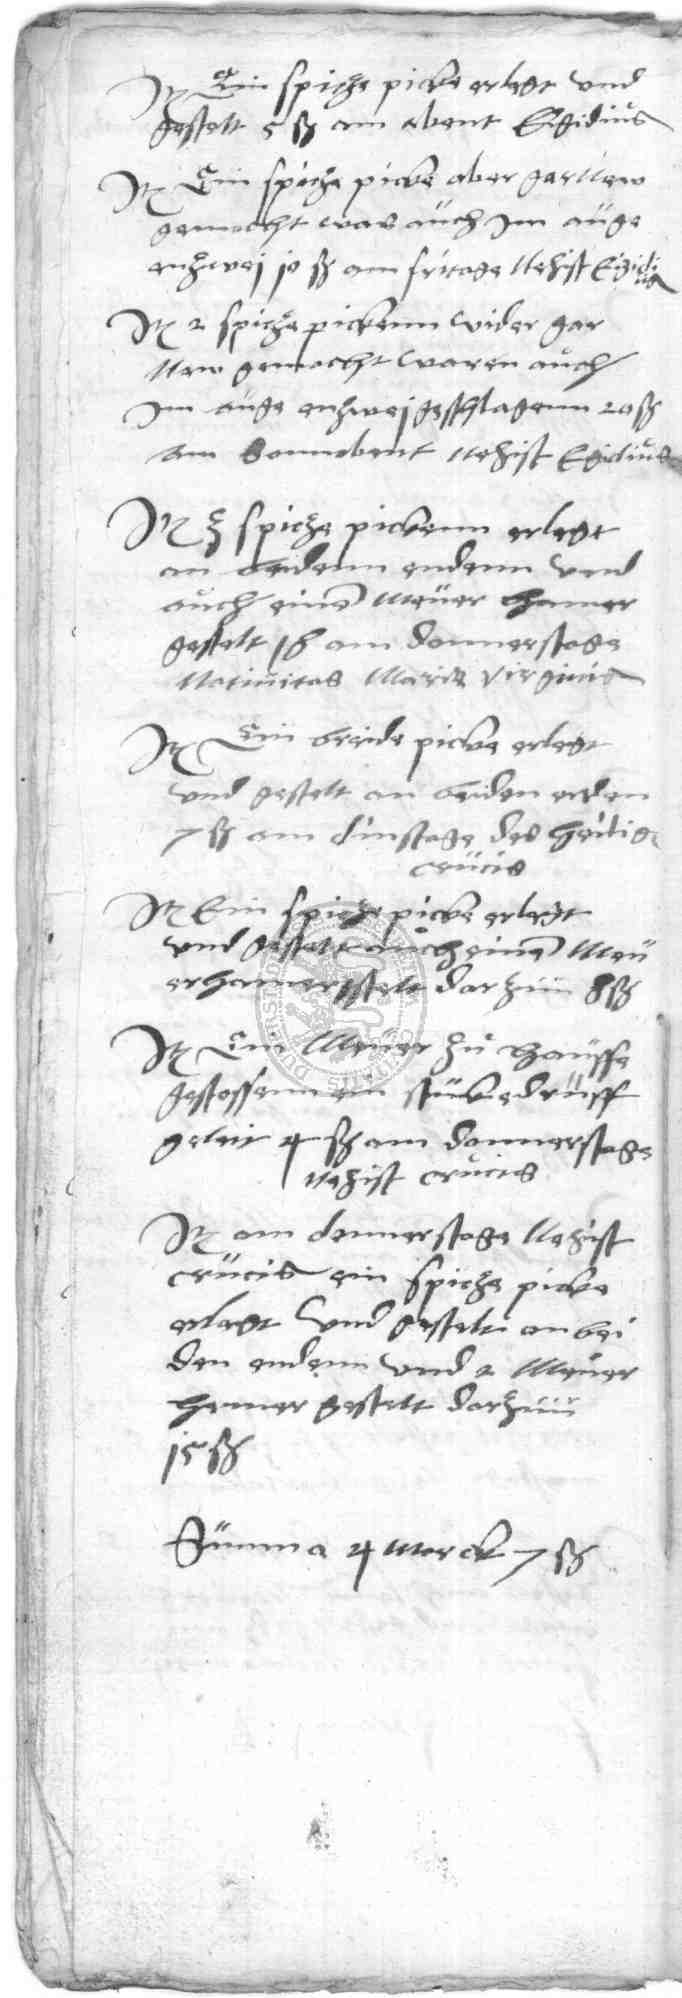 It Ein spicze picke erlegt vnd
gestelt 5 ß am abent Egidius
It Ein spicze picke aber gar New
gemacht was auch Im auge
enzwei 10 ß am fritage Nehist Egidi
us
It 2 spicze pickenn wider gar
New gemacht waren auch
Im auge enzwei geschlagenn 20 ß
am Sonnobent Nehist Egidius
It 3 spicze pickenn erlegt
an beidenn endenn vnd
auch einen Meuer hamer
gestelt 18 am donnerstage
Natiuitas Marie virginis
It Ein breide picke erlegt
vnd gestelt an beiden enden
7 ß am dinstage des heilig
crucis
It Ein spicze picke erlegt
vnd gestelt auch einen Meu
erhamer gstelt darzuu 8 ß
It Ein Meuer zu hausse
gestossenn ein stucke druff
geleit 4 ß am donnerstage
Nehist crucis
It am donnerstage Nehist
crucis ein spicze picke
erlegt vnd gestelt an bei
den endenn vnd 2 Meuer
hemer gestelt darzuu
15 ß
Summa 4 Marck 7 ß